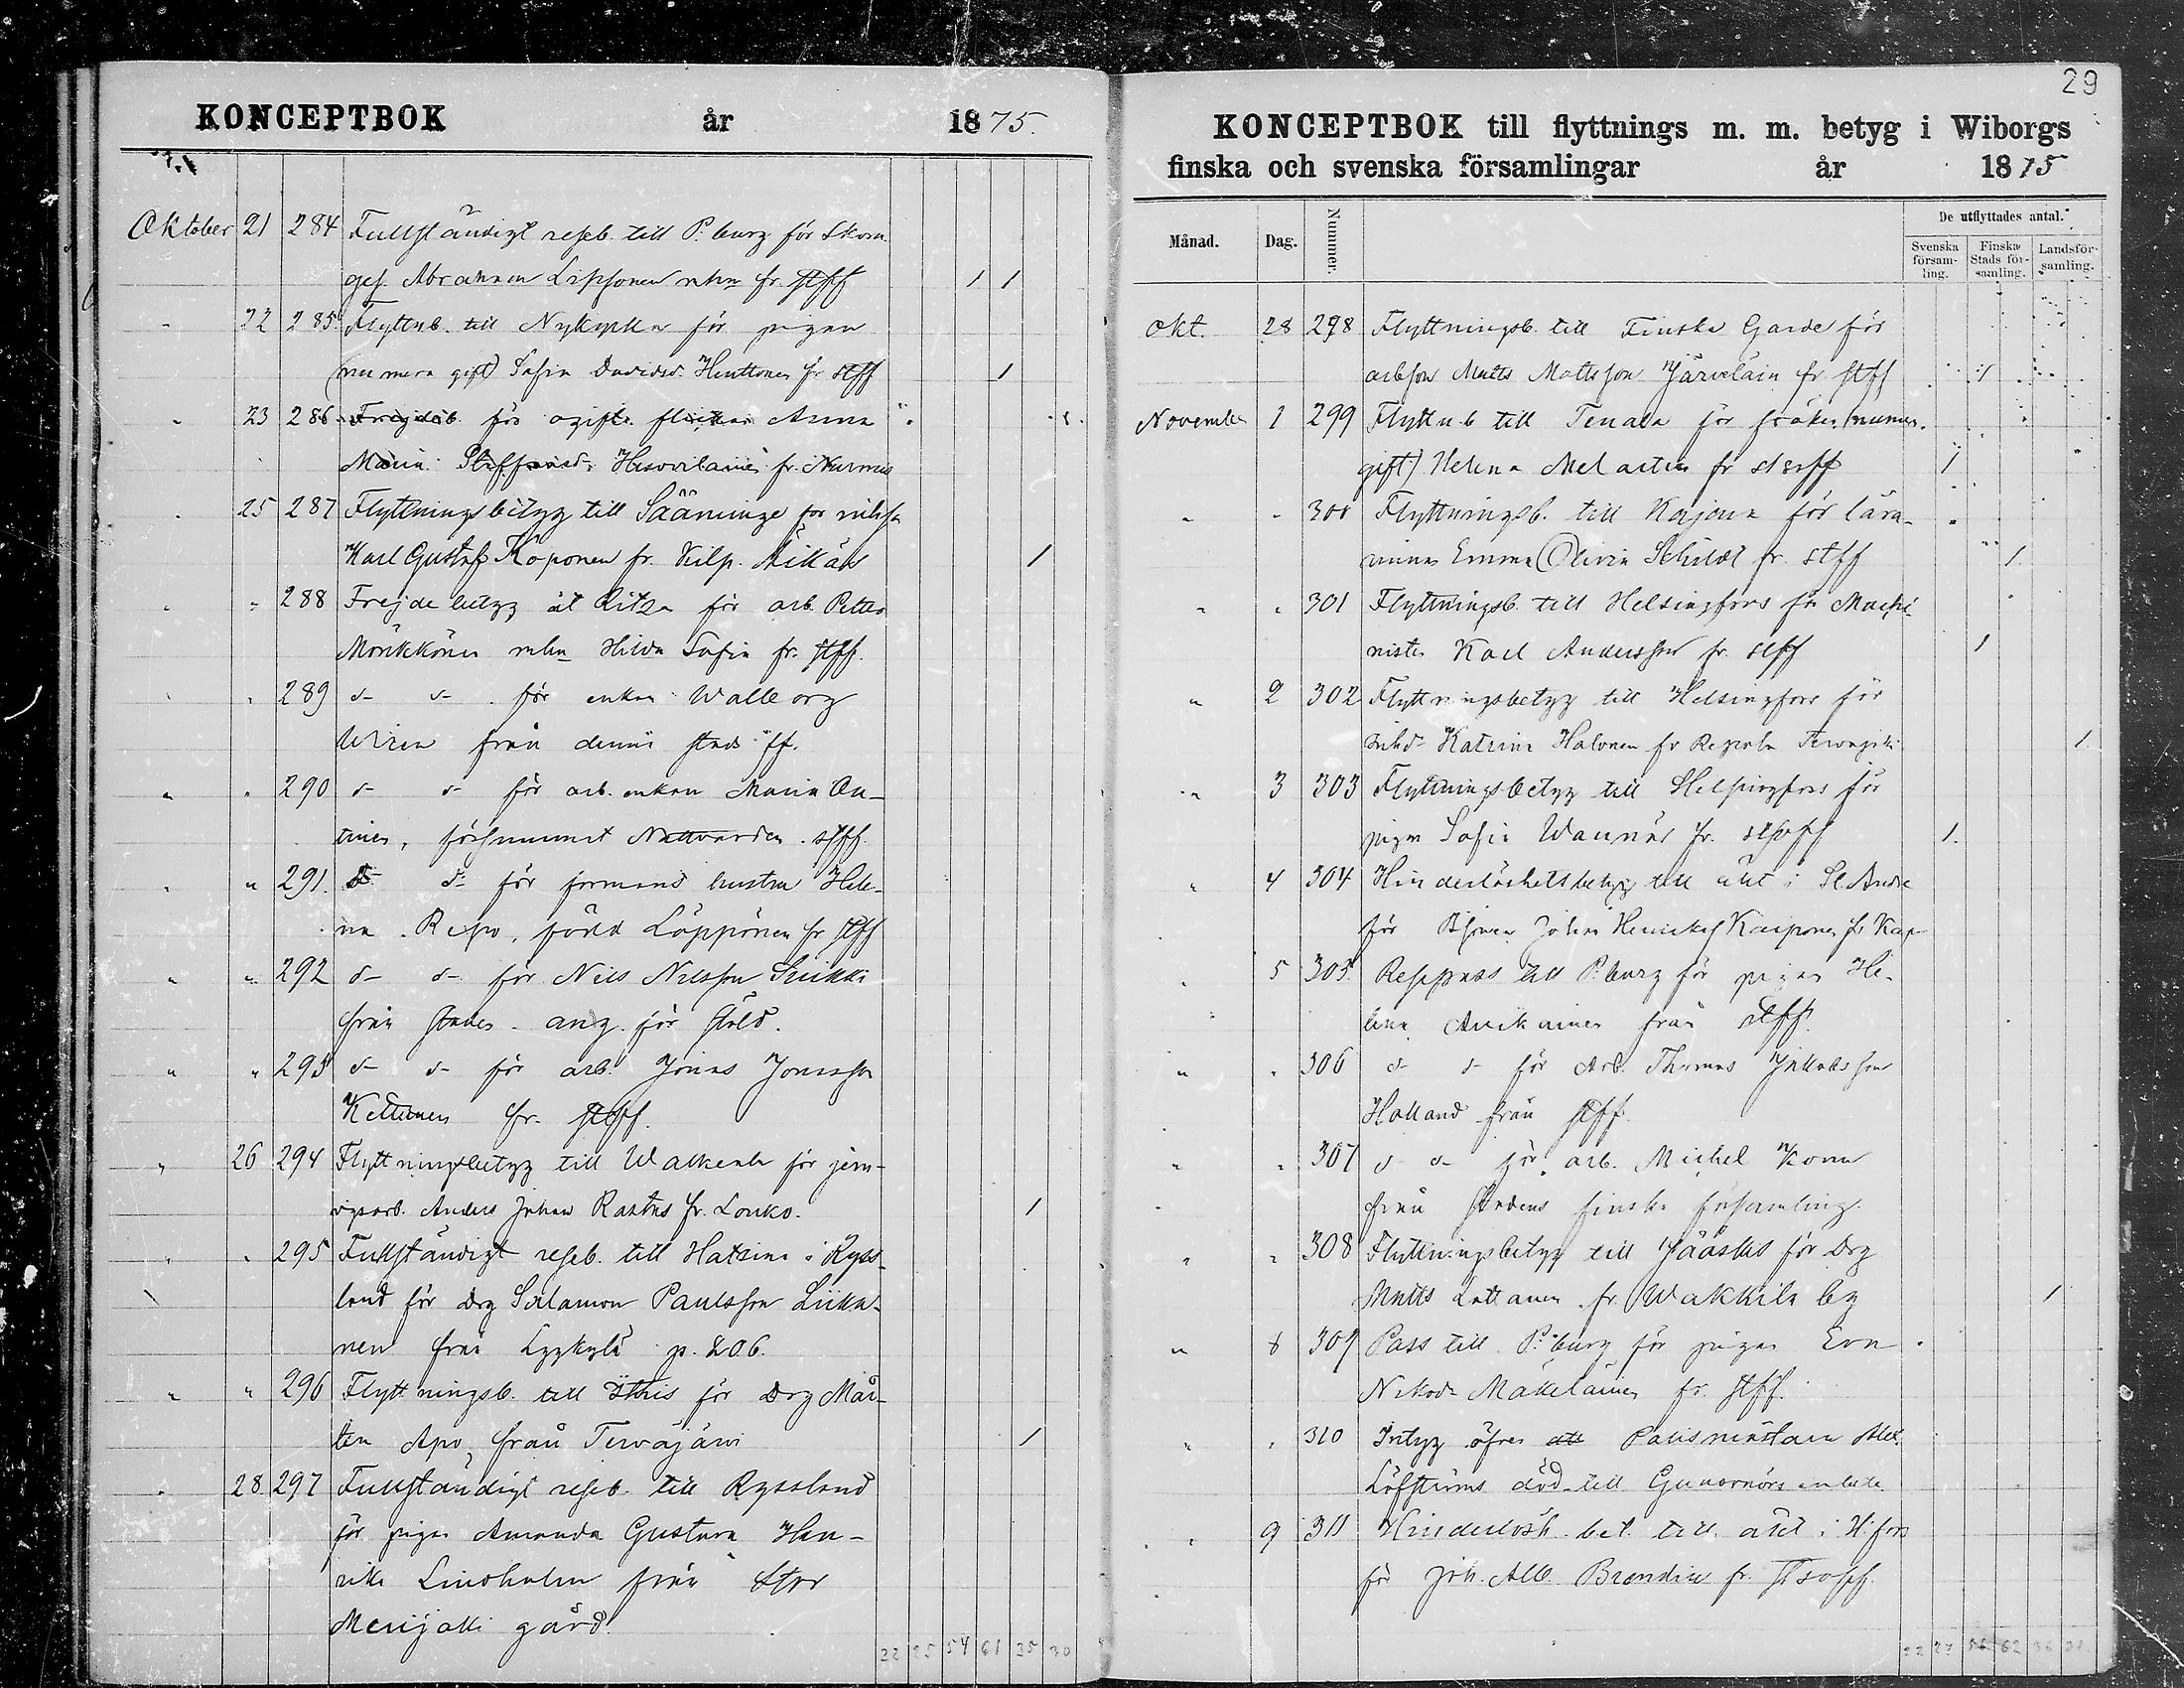 KONCEPTBOK år 1875.
Oktober 21 284 Fullständigt reseb. till P:burg för skom.
ges. Abraham Lipponen mhu fr. stff 1 1
" 22 285 Flyttnb. till Nykyrka för pigan
(numera gift) Sofia Davidsd. Huttonen fr stff 1
" 23 286 Frejdeb. för ogifta flickan Anna
Maria Staffansd. fr. Nurmis
25 287 Flyttningsbetyg till Sääminge för
Karl Gustaf Koponen fr. Kilp. 1
" " 288 Frejdebetyg åt för arb. Petter
Mönkkönen mhu Hilda Sofia fr. stff.
" " 289 d- d- för enkan Walborg
från denna stads ff.
" " 290 d- d- för arb. enkan Maria An-
tinen, försummat Nattvarden. stff.
" " 291. d- d- för formans hustru Hele-
na Repo, född Löppönen fr stff
" " 292 d- d- för Nils Nilsson
från staden ang. för stöld.
" " 293 d- d- för arb. Jonas Jonasson
Kettunen fr. stff.
" 26 294 Flyttningsbetyg till Walkeala för jern-
vgsarb. Anders Johan Rastas fr. Louko. 1
" " 295 Fullständigt reseb. till Hatsina i Ryss-
land för drg Salamon Paulsson Liika-
nen från Lyykylä p. 206.
" " 296 Flyttningsb. till för Drg Mår-
ten Apo, från Terwajärwi 1
" 28 297 Fullständigt reseb. till Ryssland
för pigan Amanda Gustava Hen-
rika Lindholm från Stor
Merijoki gård.
22 25 54 61 35 30
29
KONCEPTBOK till flyttnings m. m. betyg i Wiborgs
finska och svenska församlingar år 1875
Månad. Dag. Nummer. De utflyttades antal.
Svenska församling. Finska Stads församling. Landsförsamling.
Okt. 28 298 Flyttningsb. till Finska Garde för
arbson Matts Mattsson Järveläin fr stff 1
November 1 299 Flyttnb till Tenala för fröken (numer.
gift) Helena Melartin fr st svff 1
" " 300 Flyttningsb. till Kajana för lära-
rinnan Emma Olivia Schildt fr. stff 1
" " 301 Flyttningsb. till Helsingfors för Machi-
nisten Karl Andersson fr. stff 1
" 2 302 Flyttningsbetyg till Helsingfors för
Katrina Halonen fr Repola 1
" 3 303 Flyttningsbetyg till Helsingfors för
pigan Sofia Wannér fr. stsvff 1.
" 4 304 Hinderlöshetsbetyg till äkt i St. Andre
för Johan Henriks Karponen fr Kar-
" 5 305 Respass till P:burg för pigan He-
lena Avikainen från stff.
" " 306 d- d- för Arb. Thomas Jakobsson
Holland från stff.
" " 307 d- d- för arb. Michel
från stadens finska församling.
" " 308 Flyttningsbetyg till Jääskis för Drg
Matts Lattanen fr. Wakkila by 1
" 8 309 Pass till P:burg för pigan Eva
Nikod. Mäkeläinen fr. stff.
" " 310 Intyg öfver Polismästare Alex.
Löfströms död till Guvernörs embete
" 9 311 Hinderlösh. bet. till äkt i H:fors
för Joh. Alb. Brondin fr. stsvff.
22 27 56 62 36 30